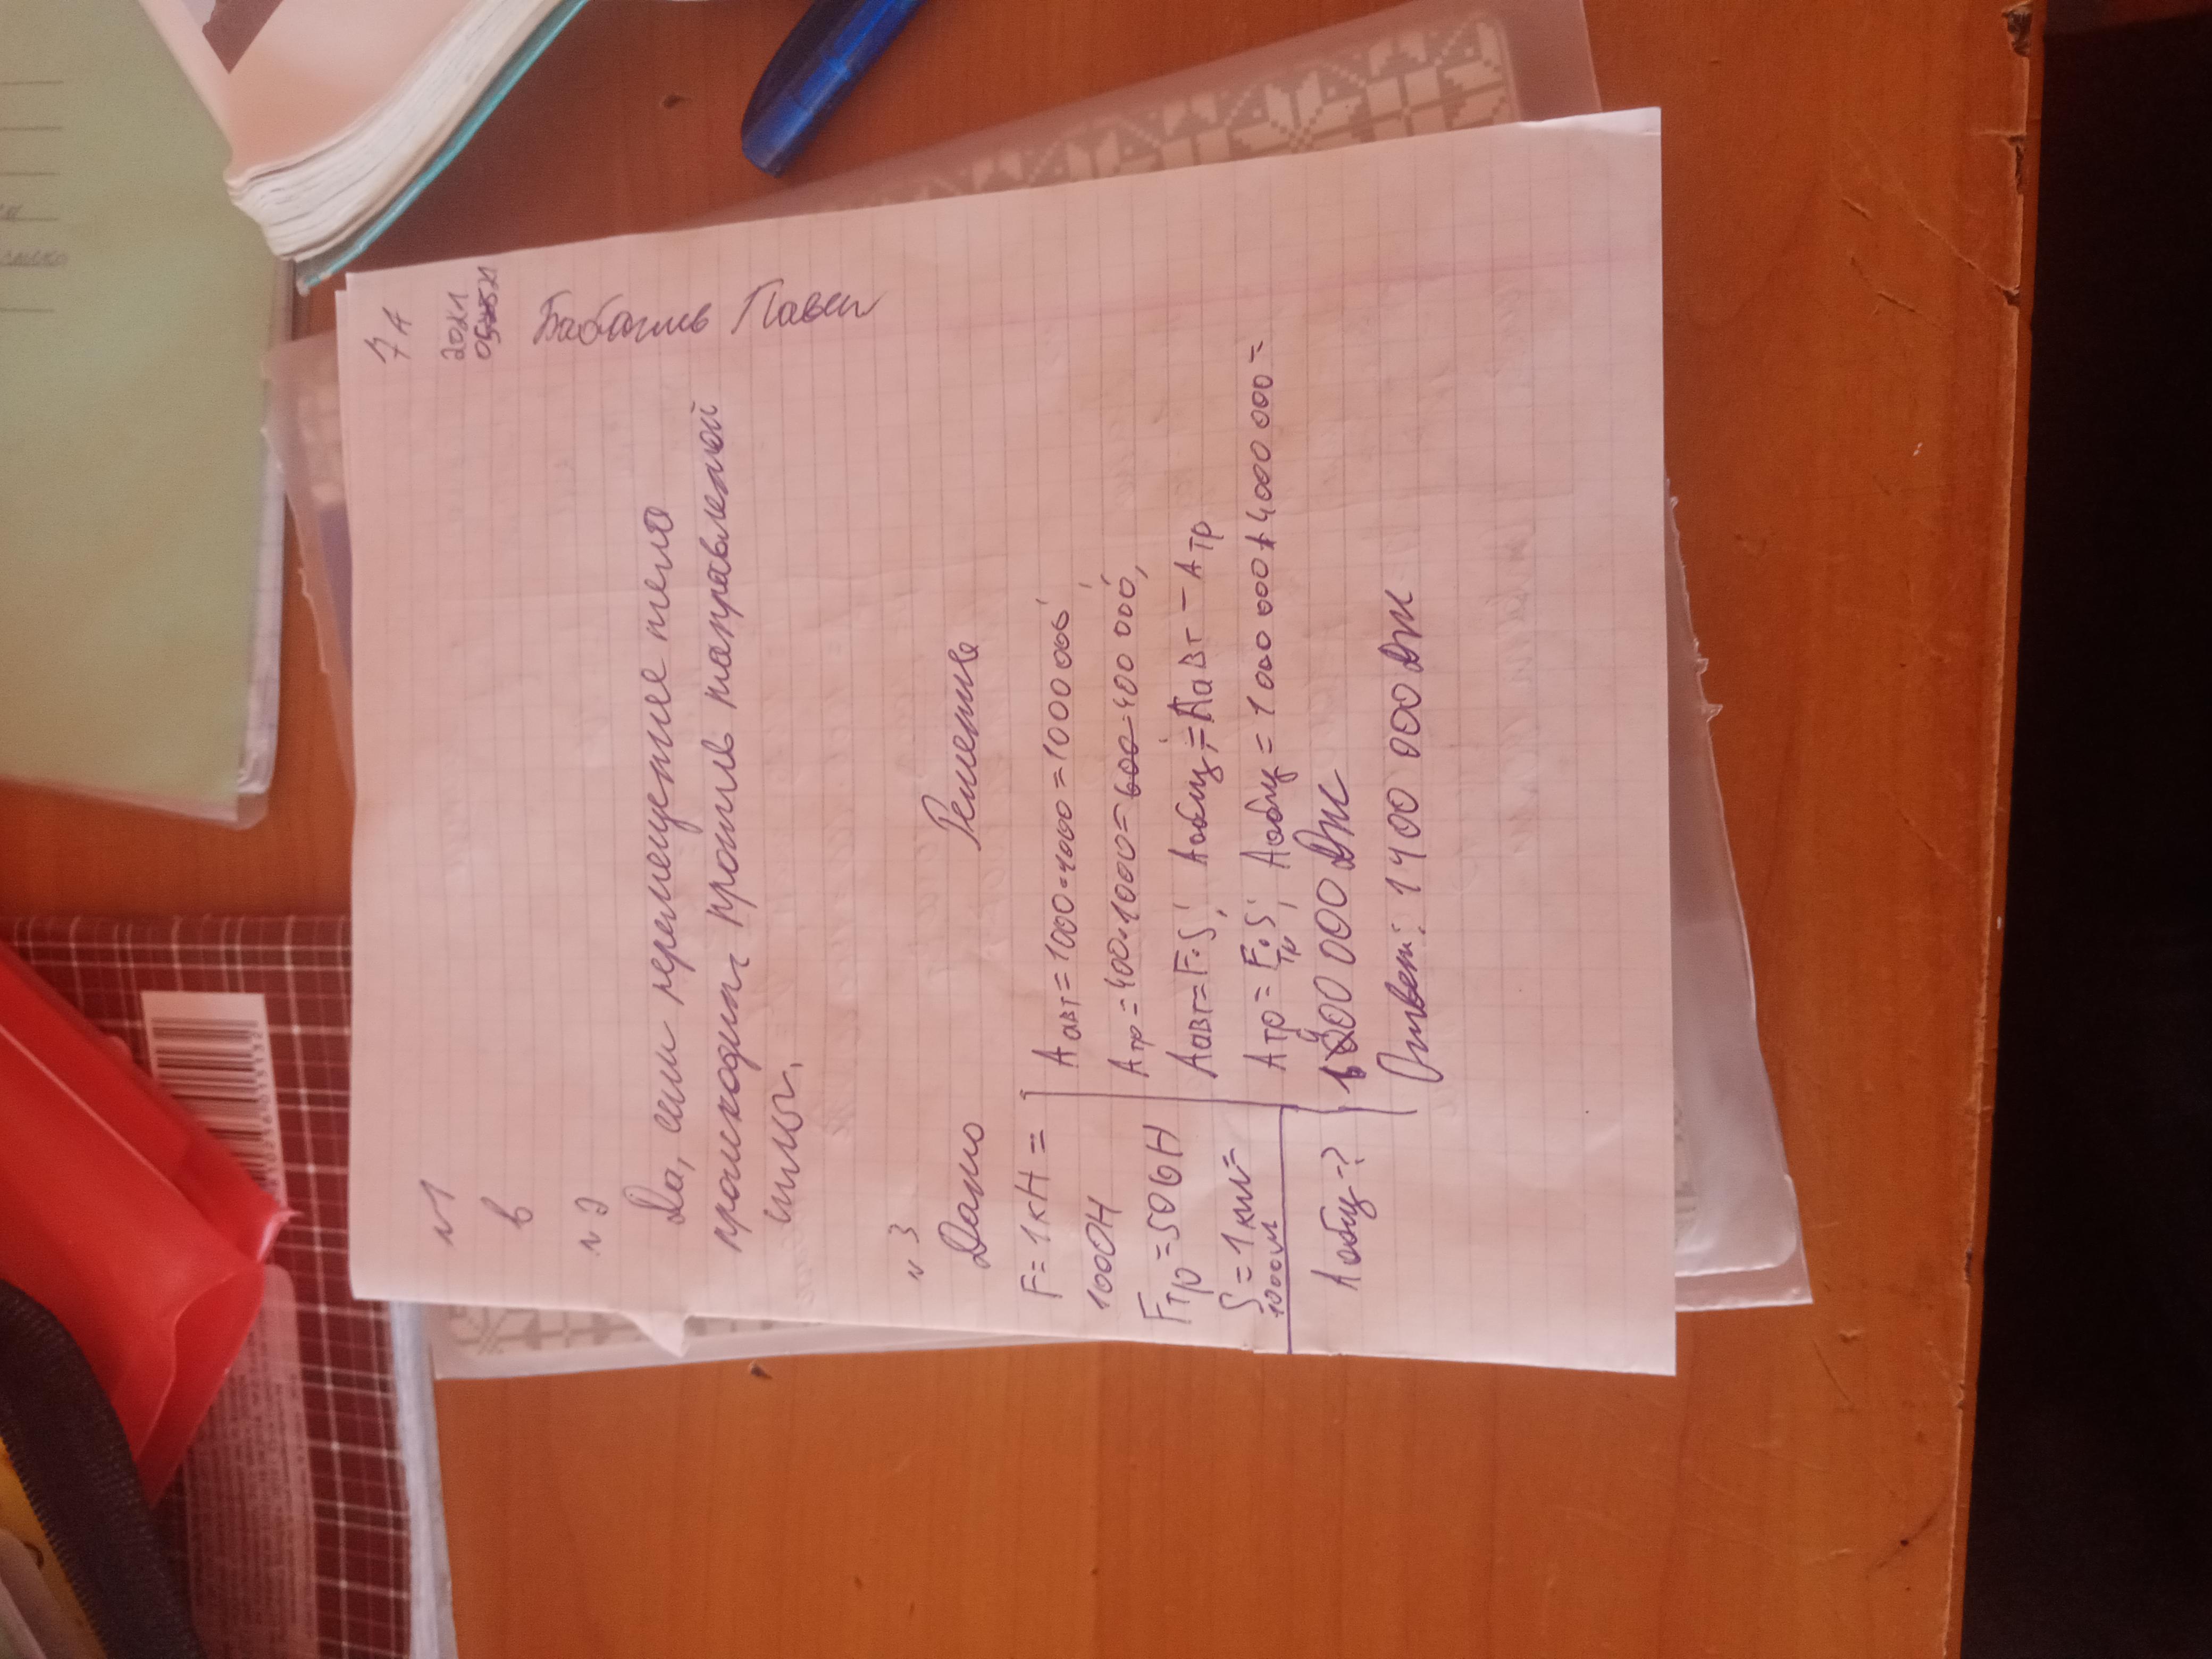 7А
20.21
Бабагив Павел
№1
в
№2
Да, если перемещение тела
происходит против направленной
силы.
№3
Дано
Решение
F=1кН=
1000Н
Fтр=500Н
S=1км=
1000м
Аобщ-?
Aавт=1000·1000=1000 000;
Aтр=400·1000=600=400 000;
Aавт=F·S; Аобщ=Aавт-Aтр
Атр=Fтр·S; Аобщ=1000 000+4000 000=
1400 000Дж
Ответ: 1400 000Дж